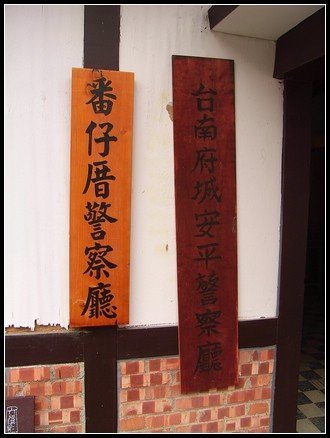 番仔厝警察廳
台南府城安平警察廳